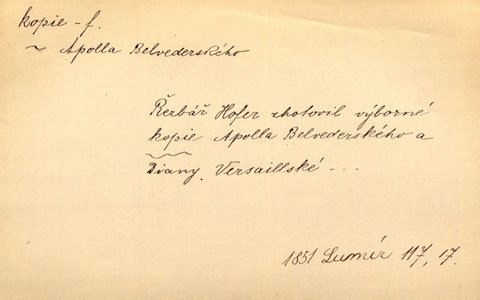 kopie – f.
~ Apolla Belvederského
Řezbář Hofer zhotovil výborné
kopie Apolla Belvederského a
Diany Versaillské ---
1851 Lumír 117, 17.